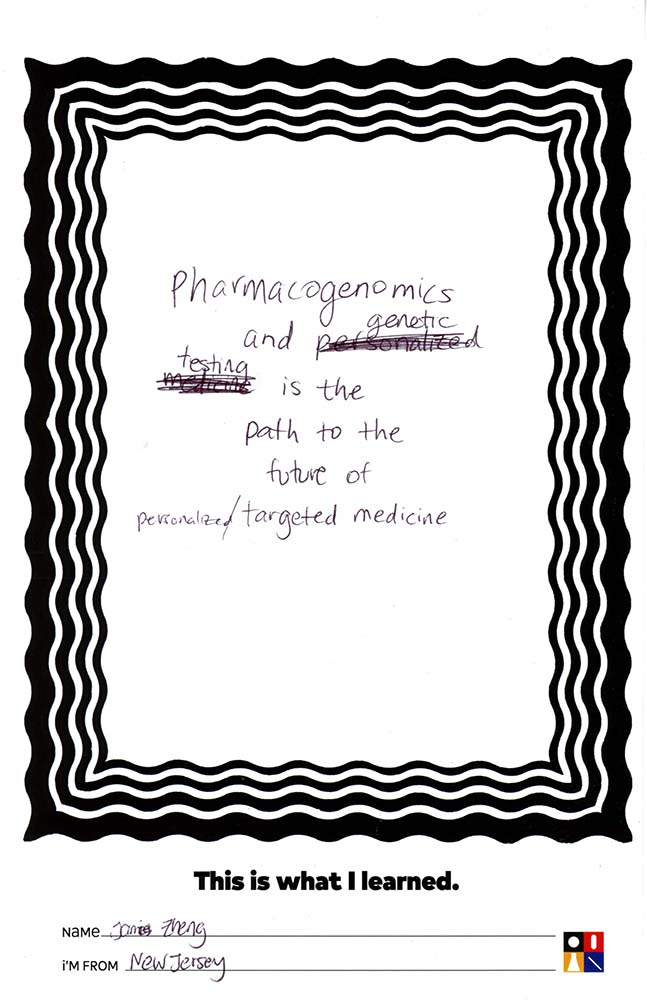 Pharmacogenomics
and personalized genetic
medicine testing is the
path to the
future of
personalized/targeted medicine
This is what I learned.
NAME Zheng
i'M FROM New Jersey